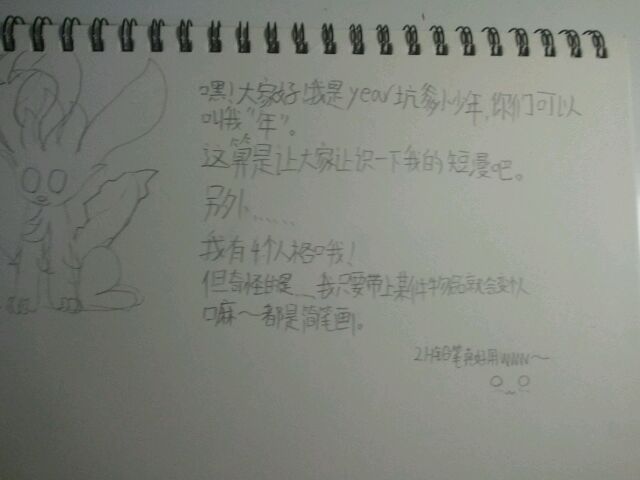 嘿!大家好!我是year坑爹小少年,你们可以
叫我"年"。
这算是让大家认识一下我的短漫吧。
另外......
我有4个人格哦!
但奇怪的是...我只要带上某件物品就会变人
嘛~都是简笔画。
2H铅笔真好用www~